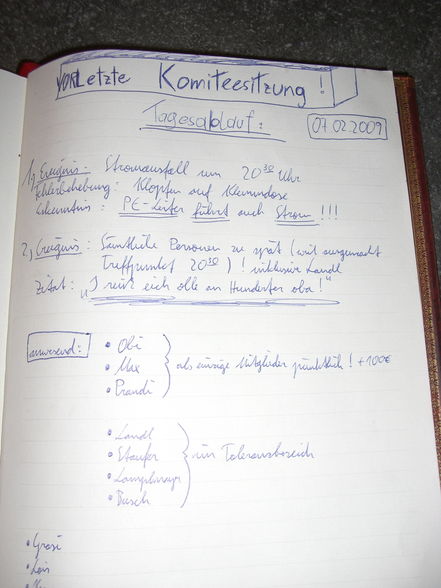 VORLetzte Komiteesitzung !
Tagesablauf:
07.02.2009
1.) Ereignis: Stromausfall um 20³⁰ Uhr
Fehlerbehebung: Klopfen auf Klemmdose
Erkenntnis: PE-Leiter führt auch Strom !!!
2.) Ereignis: Sämtliche Personen zu spät (weil ausgemacht
Treffpunkt 20³⁰) ! inklusive Landl
Zitat: „I reiß eich olle an Hunderter oba!"
anwesend:
• Obi
• Max
• Prandi
als einzige Mitglieder pünktlich! +100€
• Landl
• Staufer
• Lamplmayr
• Busch
im Toleranzbereich
• Grosi
• Lois